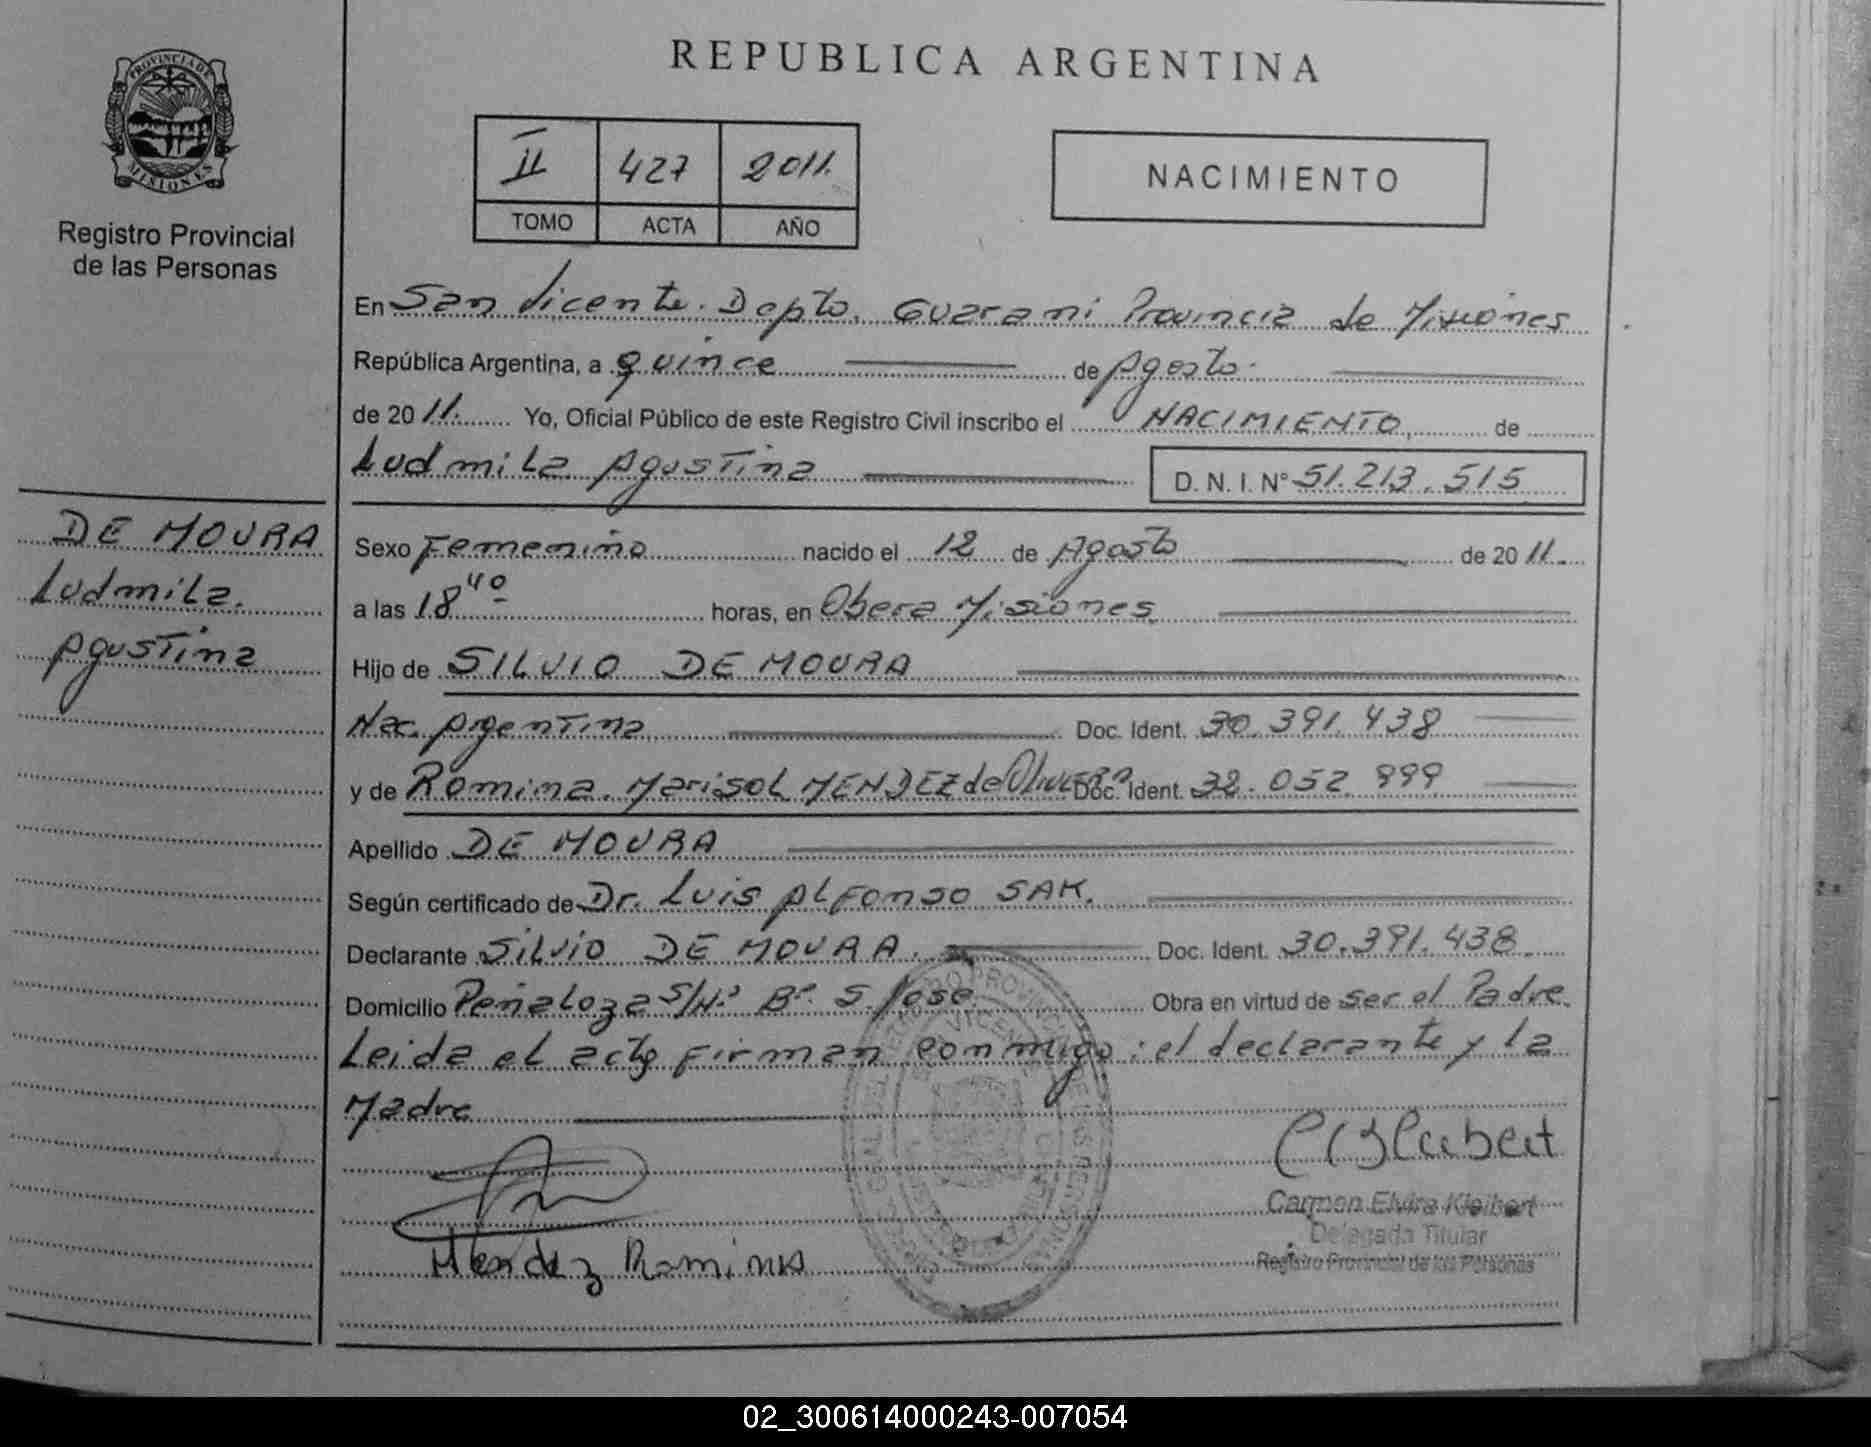 REPUBLICA ARGENTINA
PROVINCIA DE
MISIONES
Registro Provincial
de las Personas
II 427 2011.
TOMO ACTA AÑO
NACIMIENTO
En San Vicente. Depto. Guarani Provincia de Misiones
República Argentina, a quince de Agosto.
de 2011. Yo, Oficial Público de este Registro Civil inscribo el NACIMIENTO de
Ludmila Agustina D. N. I. N° 51.213.515
DE MOURA
Ludmila.
Agustina
Sexo Femenino nacido el 12 de Agosto de 2011.
a las 18 40 horas, en Obera Misiones
Hijo de SILVIO DE MOURA
Nac. Argentina Doc. Ident. 30.391.438
y de Romina Marisol MENDEZ de Olivera Doc. Ident. 32.052.999
Apellido DE MOURA
Según certificado de Dr. Luis Alfonso SAK.
Declarante Silvio DE MOURA. Doc. Ident. 30.391.438
Domicilio Peñaloza S/Nº Bº. S. Jose Obra en virtud de ser el Padre.
Leida el acta firman conmigo: el declarante y la
Madre
Mendez Romina
Carmen Elvira Kleibert
Delegada Titular
Registro Provincial de las Personas
02_300614000243-007054